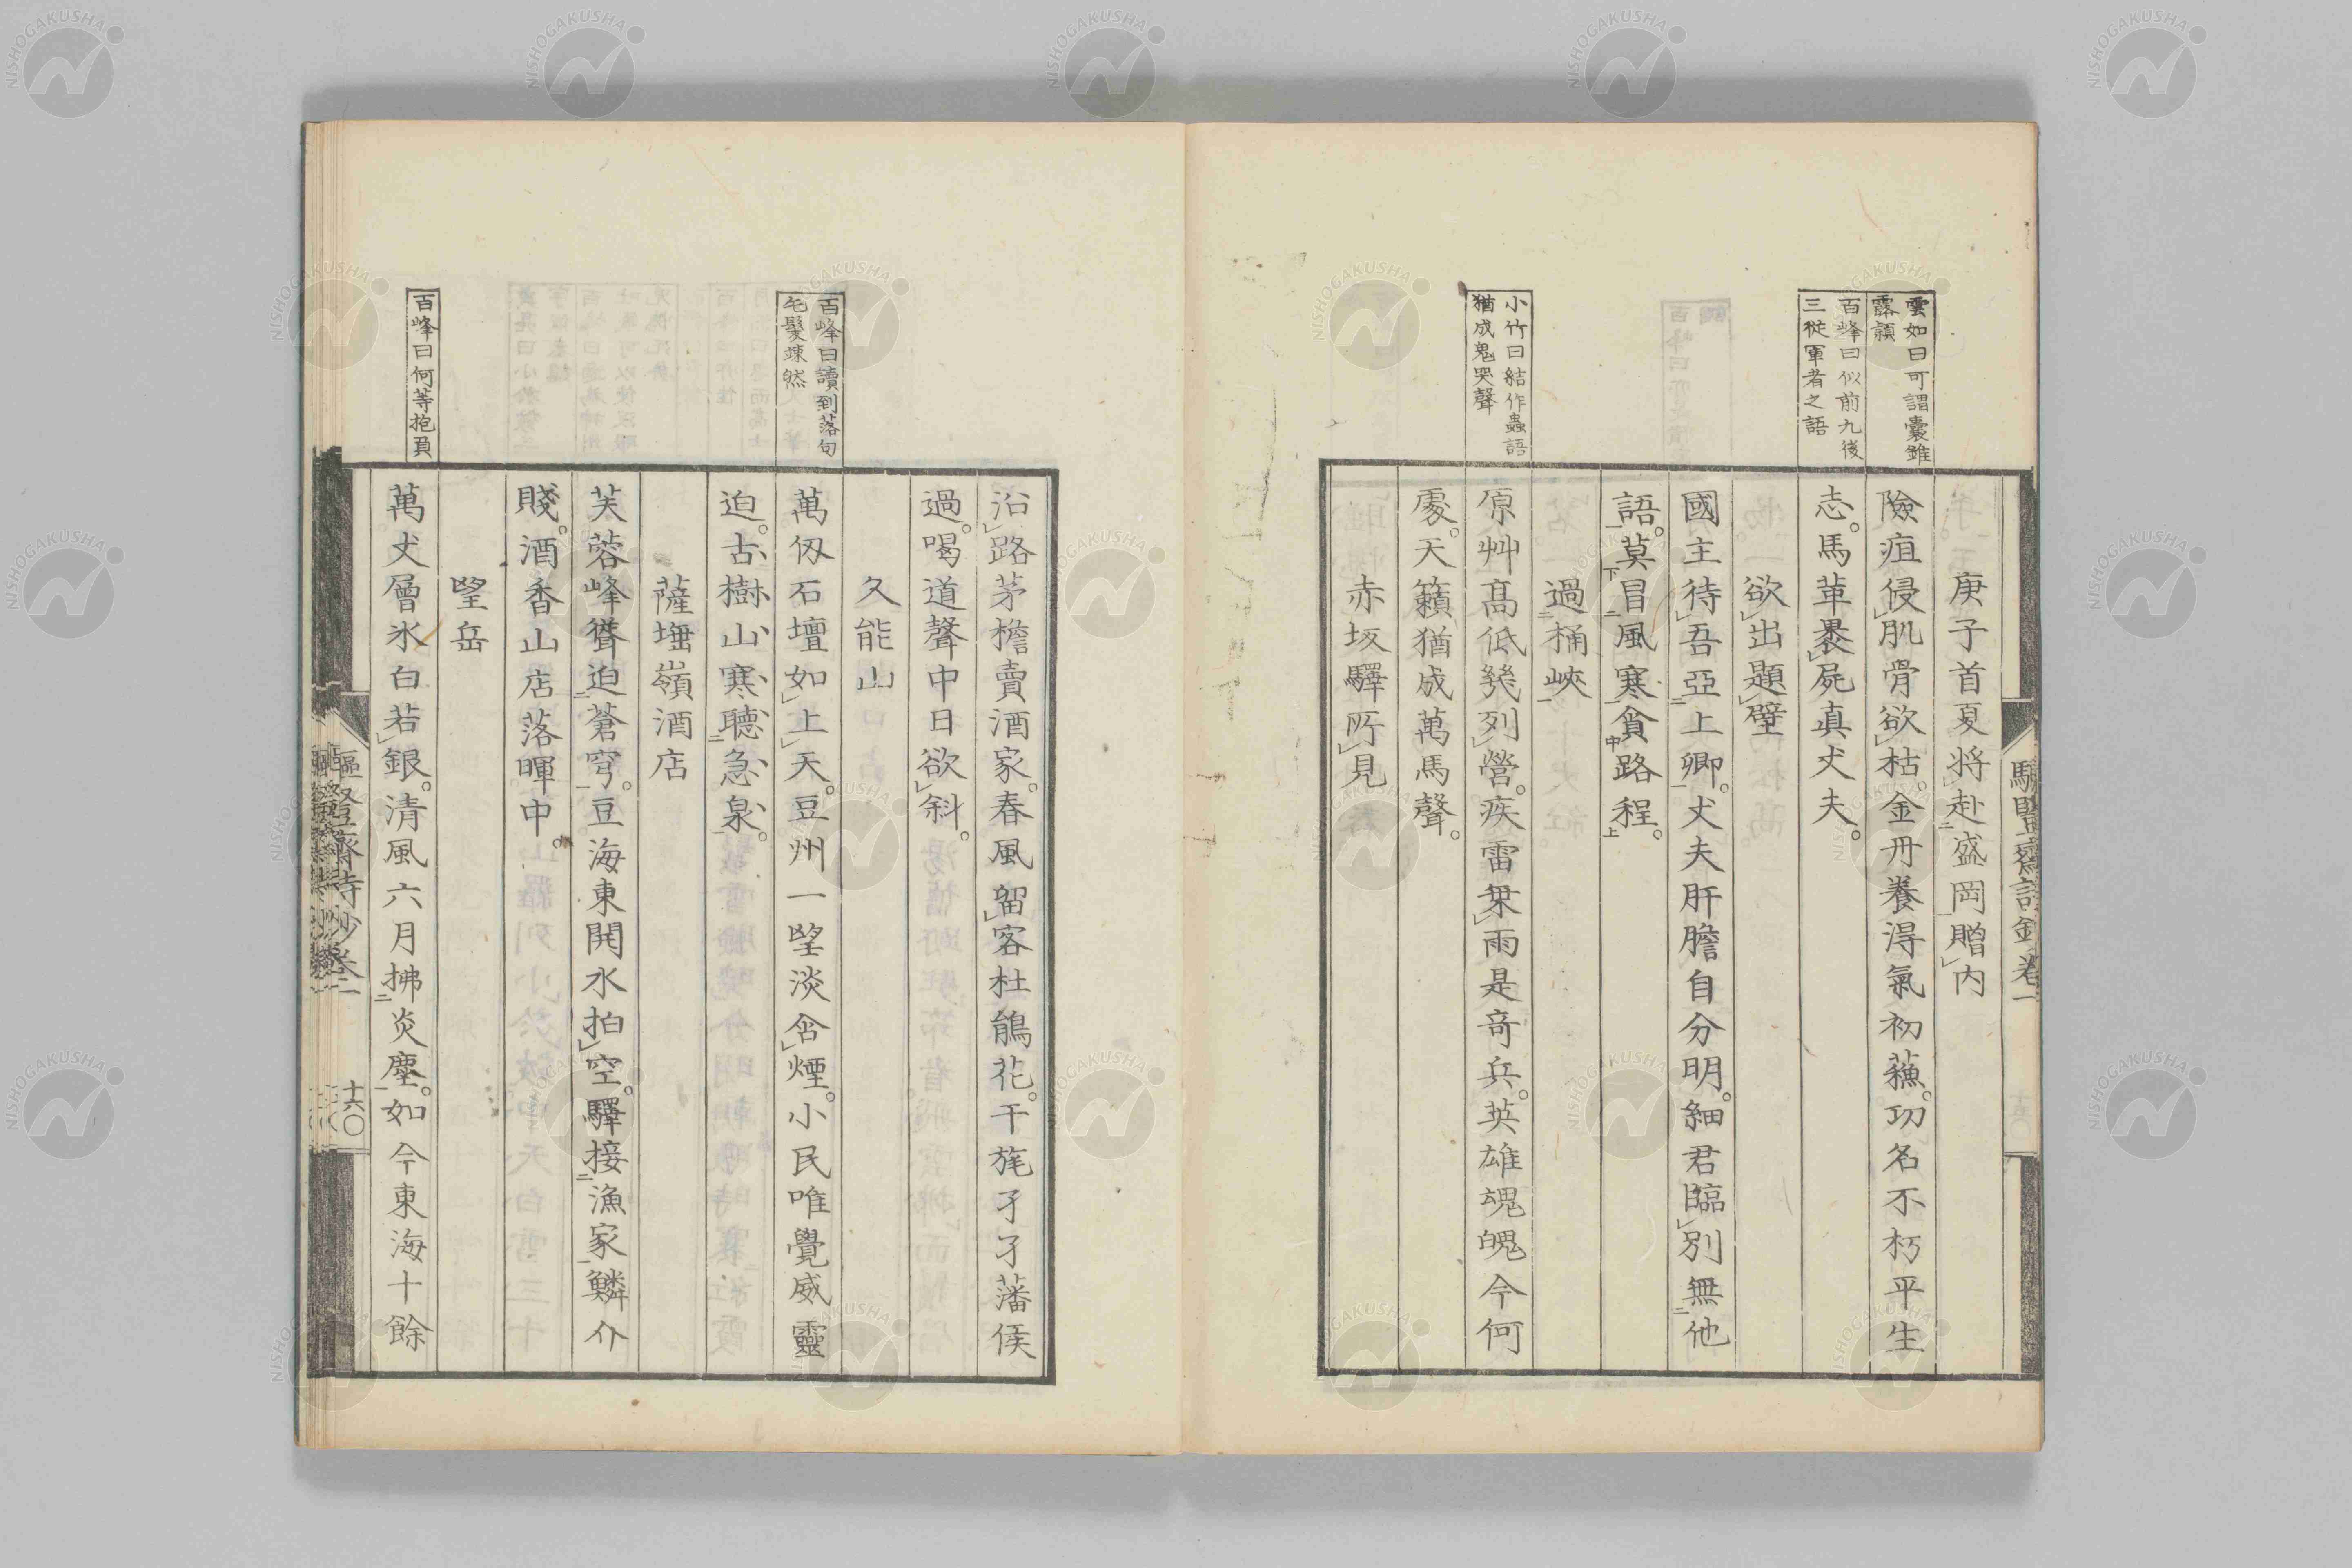 雲如曰可謂嚢錐
露頴
百峰曰似前九後
三從軍者之語
小竹曰結作蟲語
猶成鬼哭聲
庚子首夏將赴盛岡贈内
險疽侵肌骨欲枯。金丹養得氣初蘓。功名不朽平生
志。馬革褁屍真丈夫。
欲出題壁
國主待吾亞上卿。丈夫肝膽自分明。細君臨別無他
語。莫冒風寒貪路程。
過桶峽
原艸髙低幾列營。疾雷乗雨是竒兵。英雄魂魄今何
處。天籟猶成萬馬聲。
赤坂驛所見
百峰曰讀到落句
毛髮竦然
百峰曰何等抱負
沿路茅檐賣酒家。春風留客杜鵑花。干旄孑孑藩侯
過。喝道聲中日欲斜。
久能山
萬仭石壇如上天。豆州一望淡含煙。小民唯覺威靈
迫。古樹山寒聽急泉。
薩埵嶺酒店
芙蓉峰聳迫蒼穹。豆海東開水拍空。驛接漁家鱗介
賤。酒香山店落暉中。
望岳
萬丈層氷白若銀。清風六月拂炎塵。如今東海十餘
十六〇